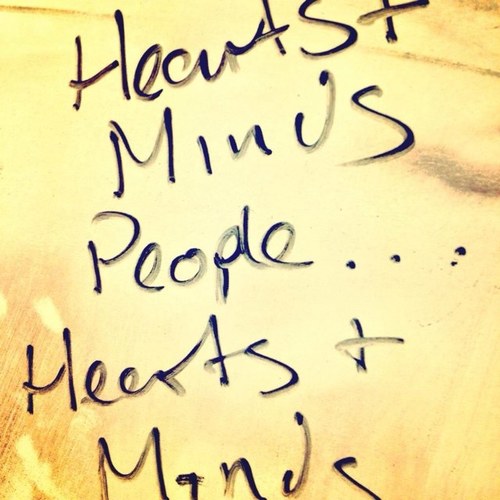 Hearts +
Minds
People....
Hearts +
Minds